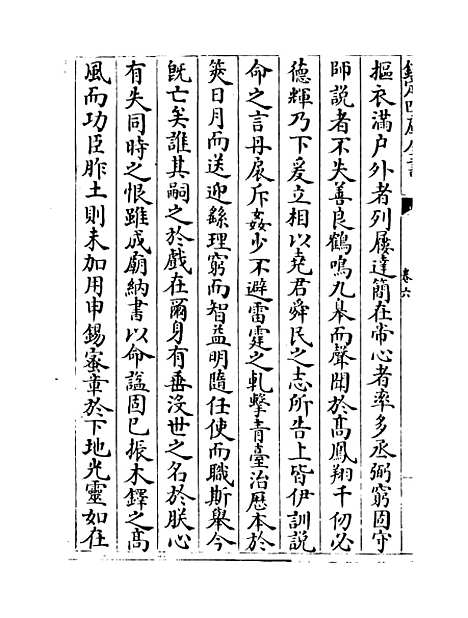 欽定四庫全書
卷六
摳衣滿户外者列屨達簡在帝心者率多丞弼窮固守
師說者不失善良鶴鳴九皋而聲聞於髙鳳翔千仞必
徳輝乃下爰立相以堯君舜民之志所告上皆伊訓說
命之言丹扆斥姦少不避雷霆之軋擊青臺治厯本於
筴日月而送迎絲理窮而智益明隨任使而職斯舉今
既亡矣誰其嗣之於戲在爾身有垂没世之名於朕心
有失同時之恨雖成廟納書以命諡固已振木鐸之髙
風而功臣胙土則未加用申錫蜜章於下地光靈如在